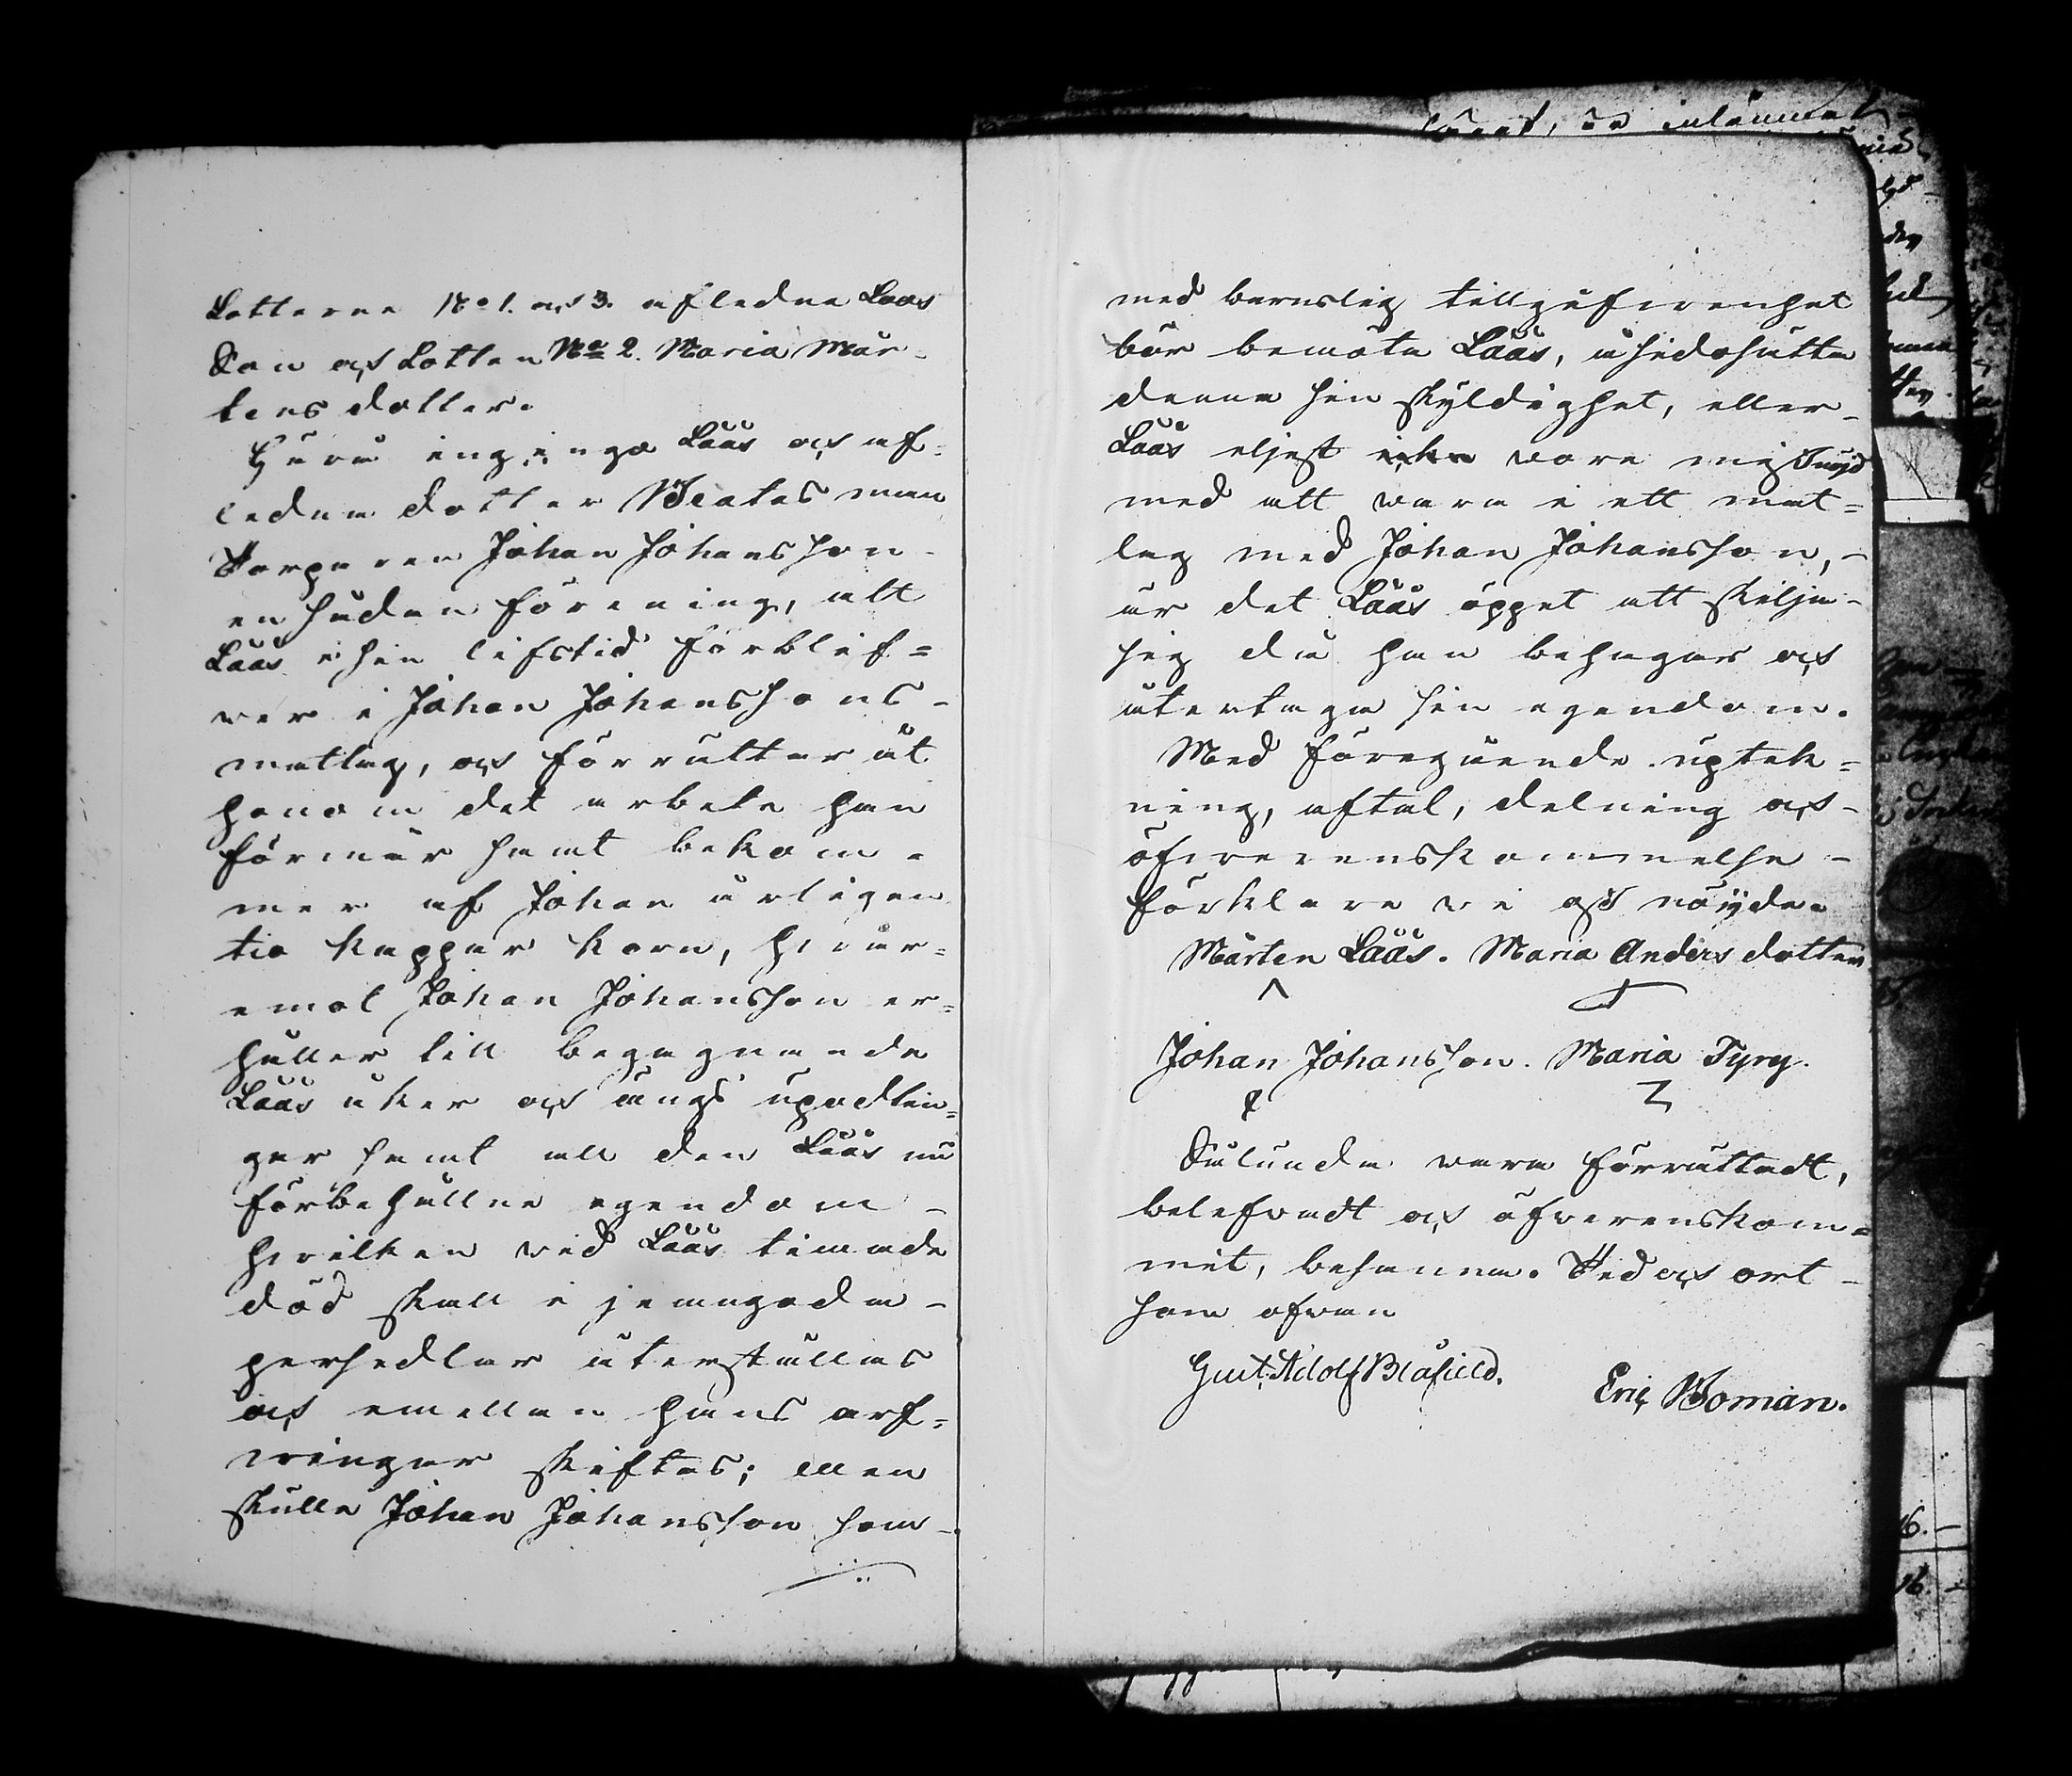 Lotterne No 1. och 3. aflednee Lååss
Son och Lotten No 2. Maria Mår-
tensdotter.
Häru ingingo Lååss och af-
lednea dotter Beatas man
Torparen Johan Johansson-
en sådan förening, att
Lååss i sin lifstid förblif=
ver i Johan Johanssons-
matlag, och förrättar åt
honom det arbete han
förmår samt bekom-
mer af Johan årligen
tio kappar korn, hvar=
emot Johan Johansson er=
håller till begagnande
Lååss åker och ängs upodlin=
gar samt all den Lååss nu
förbehållne egendom -
hvilken vid Lååss timade
död skall i jemngoda -
persedlar återställas
och emellan hans arf=
vingar skiftas; Men
skulle Johan Johansson som-
med barnslig tillgifvenhet
bör bemöta Lååss, åsidosätta
denna sin skyldighet, eller-
Lååss eljest icke vore nögd
med att vara i ett mat=
lag med Johan Johansson, -
är det Lååss öppet att skilja-
sig då han behagar och
återtaga sin egendom.
Med föregående uptek=
ning, aftal, delning och-
öfverenskommelse -
förklare vi oss nöijde.
Mårten Lååss. Maria Andersdotter
Johan Johansson. Maria Tyrg.
Sålunda vara förrättadt,
belefvadt och öfverenskom=
mit, besanna. Tid och ort-
som ofvan
Gust: Adolf Blåfield.
Eric Boman.